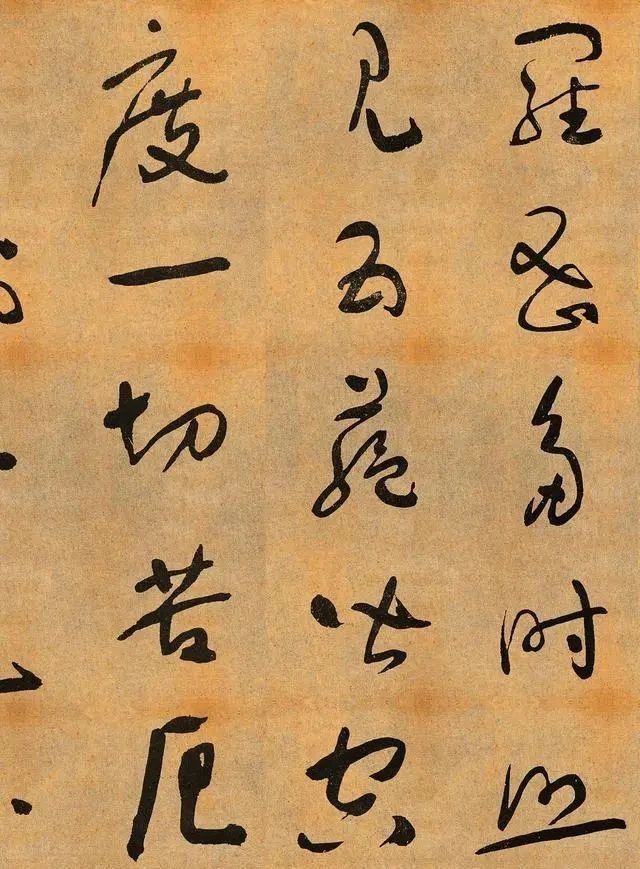 羅蜜多時照
見五蘊皆空
度一切苦厄